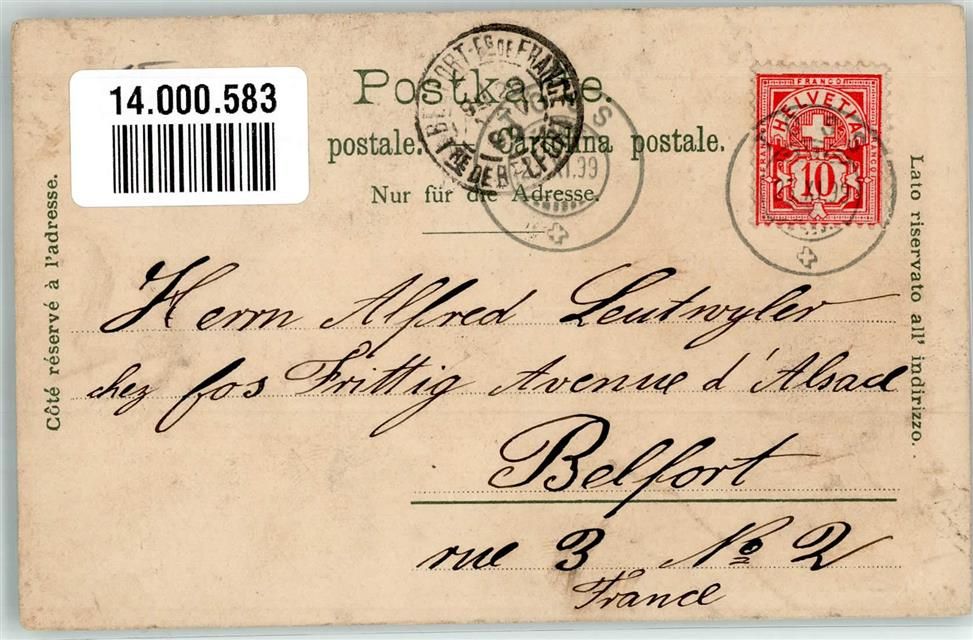 14.000.583
Postka e.
postale. Cartolina postale.
Nur für die Adresse.
Côté réservé à l'adresse.
Lato riservato all' indirizzo.
FRANCO
HELVETIA
FRANCO FRANCO
10
XI.99
Herrn Alfred Leutwyler
chez Jos Frittig Avenue d'Alsace
Belfort
rue 3 No 2
France